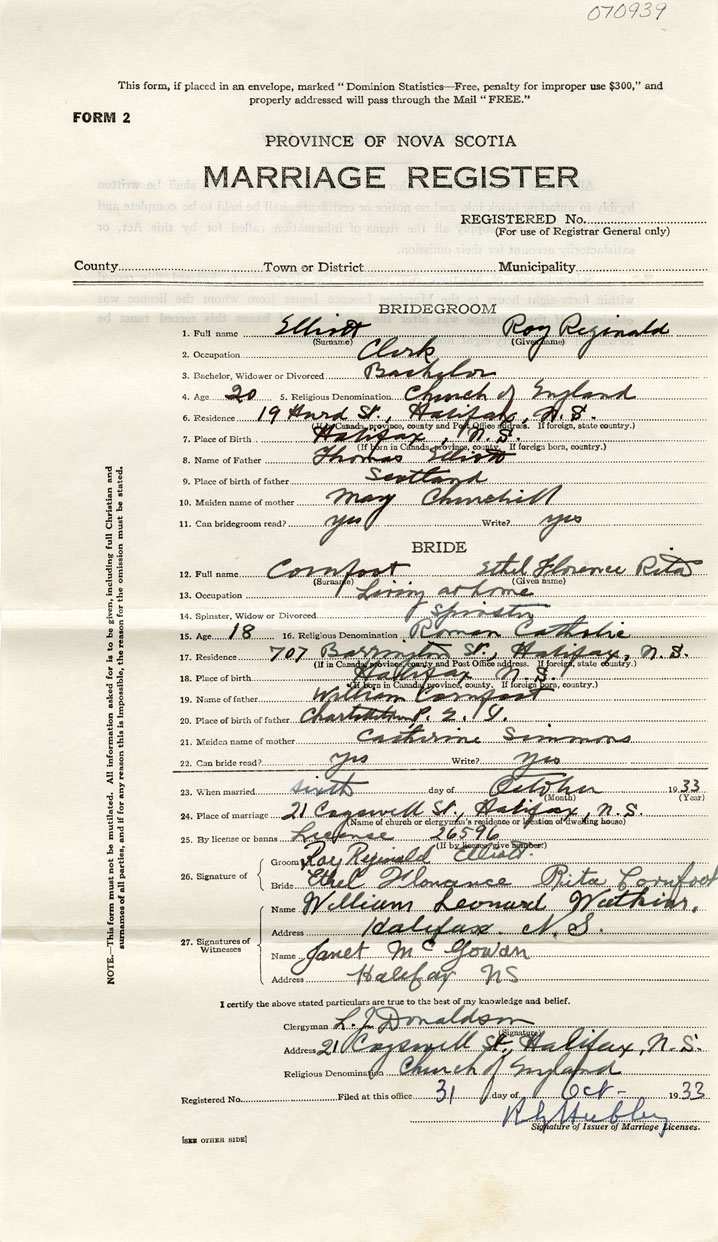 070939
This form, if placed in an envelope, marked "Dominion Statistics—Free, penalty for improper use $300," and
properly addressed will pass through the Mail "FREE."
FORM 2
PROVINCE OF NOVA SCOTIA
MARRIAGE REGISTER
REGISTERED No.
(For use of Registrar General only)
County Town or District Municipality
BRIDEGROOM
1. Full name Elliott Roy Reginald
(Surname) (Given name)
2. Occupation Clerk
3. Bachelor, Widower or Divorced Bachelor
4. Age 20 5. Religious Denomination Church of England
6. Residence 19 Hurd St., Halifax, N.S.
(If in Canada, province, county and Post Office address. If foreign, state country.)
7. Place of Birth Halifax, N.S.
(If born in Canada, province, county. If foreign born, country.)
8. Name of Father Thomas Elliott
9. Place of birth of father Scotland
10. Maiden name of mother Mary Churchill
11. Can bridegroom read? yes Write? yes
BRIDE
12. Full name Cornfoot Ethel Florence Rita
(Surname) (Given name)
13. Occupation Living at home
14. Spinster, Widow or Divorced Spinster
15. Age 18 16. Religious Denomination Roman Catholic
17. Residence 707 Barrington St., Halifax, N.S.
(If in Canada, province, county and Post Office address. If foreign, state country.)
18. Place of birth Halifax N.S.
(If born in Canada, province, county. If foreign born, country.)
19. Name of father William Cornfoot
20. Place of birth of father P.E.I.
21. Maiden name of mother Catherine Simmons
22. Can bride read? yes Write? yes
23. When married sixth day of October 1933
(Month) (Year)
24. Place of marriage 21 Cogswell St., Halifax, N.S.
(Name of church or clergyman's residence or location of dwelling house)
25. By license or banns License 26596
(If by license, give number)
26. Signature of Groom Roy Reginald Elliott.
Bride Ethel Florence Rita Cornfoot
27. Signatures of Witnesses
Name William Leonard Watkins,
Address Halifax. N.S.
Name Janet McGowan
Address Halifax NS
I certify the above stated particulars are true to the best of my knowledge and belief.
Clergyman L. J. Donaldson
(Signature)
Address 21 Cogswell St., Halifax, N.S.
Religious Denomination Church of England
Registered No. Filed at this office 31 day of Oct- 1933
Signature of Issuer of Marriage Licenses.
[SEE OTHER SIDE]
NOTE.—This form must not be mutilated. All information asked for is to be given, including full Christian and
surnames of all parties, and if for any reason this is impossible, the reason for the omission must be stated.